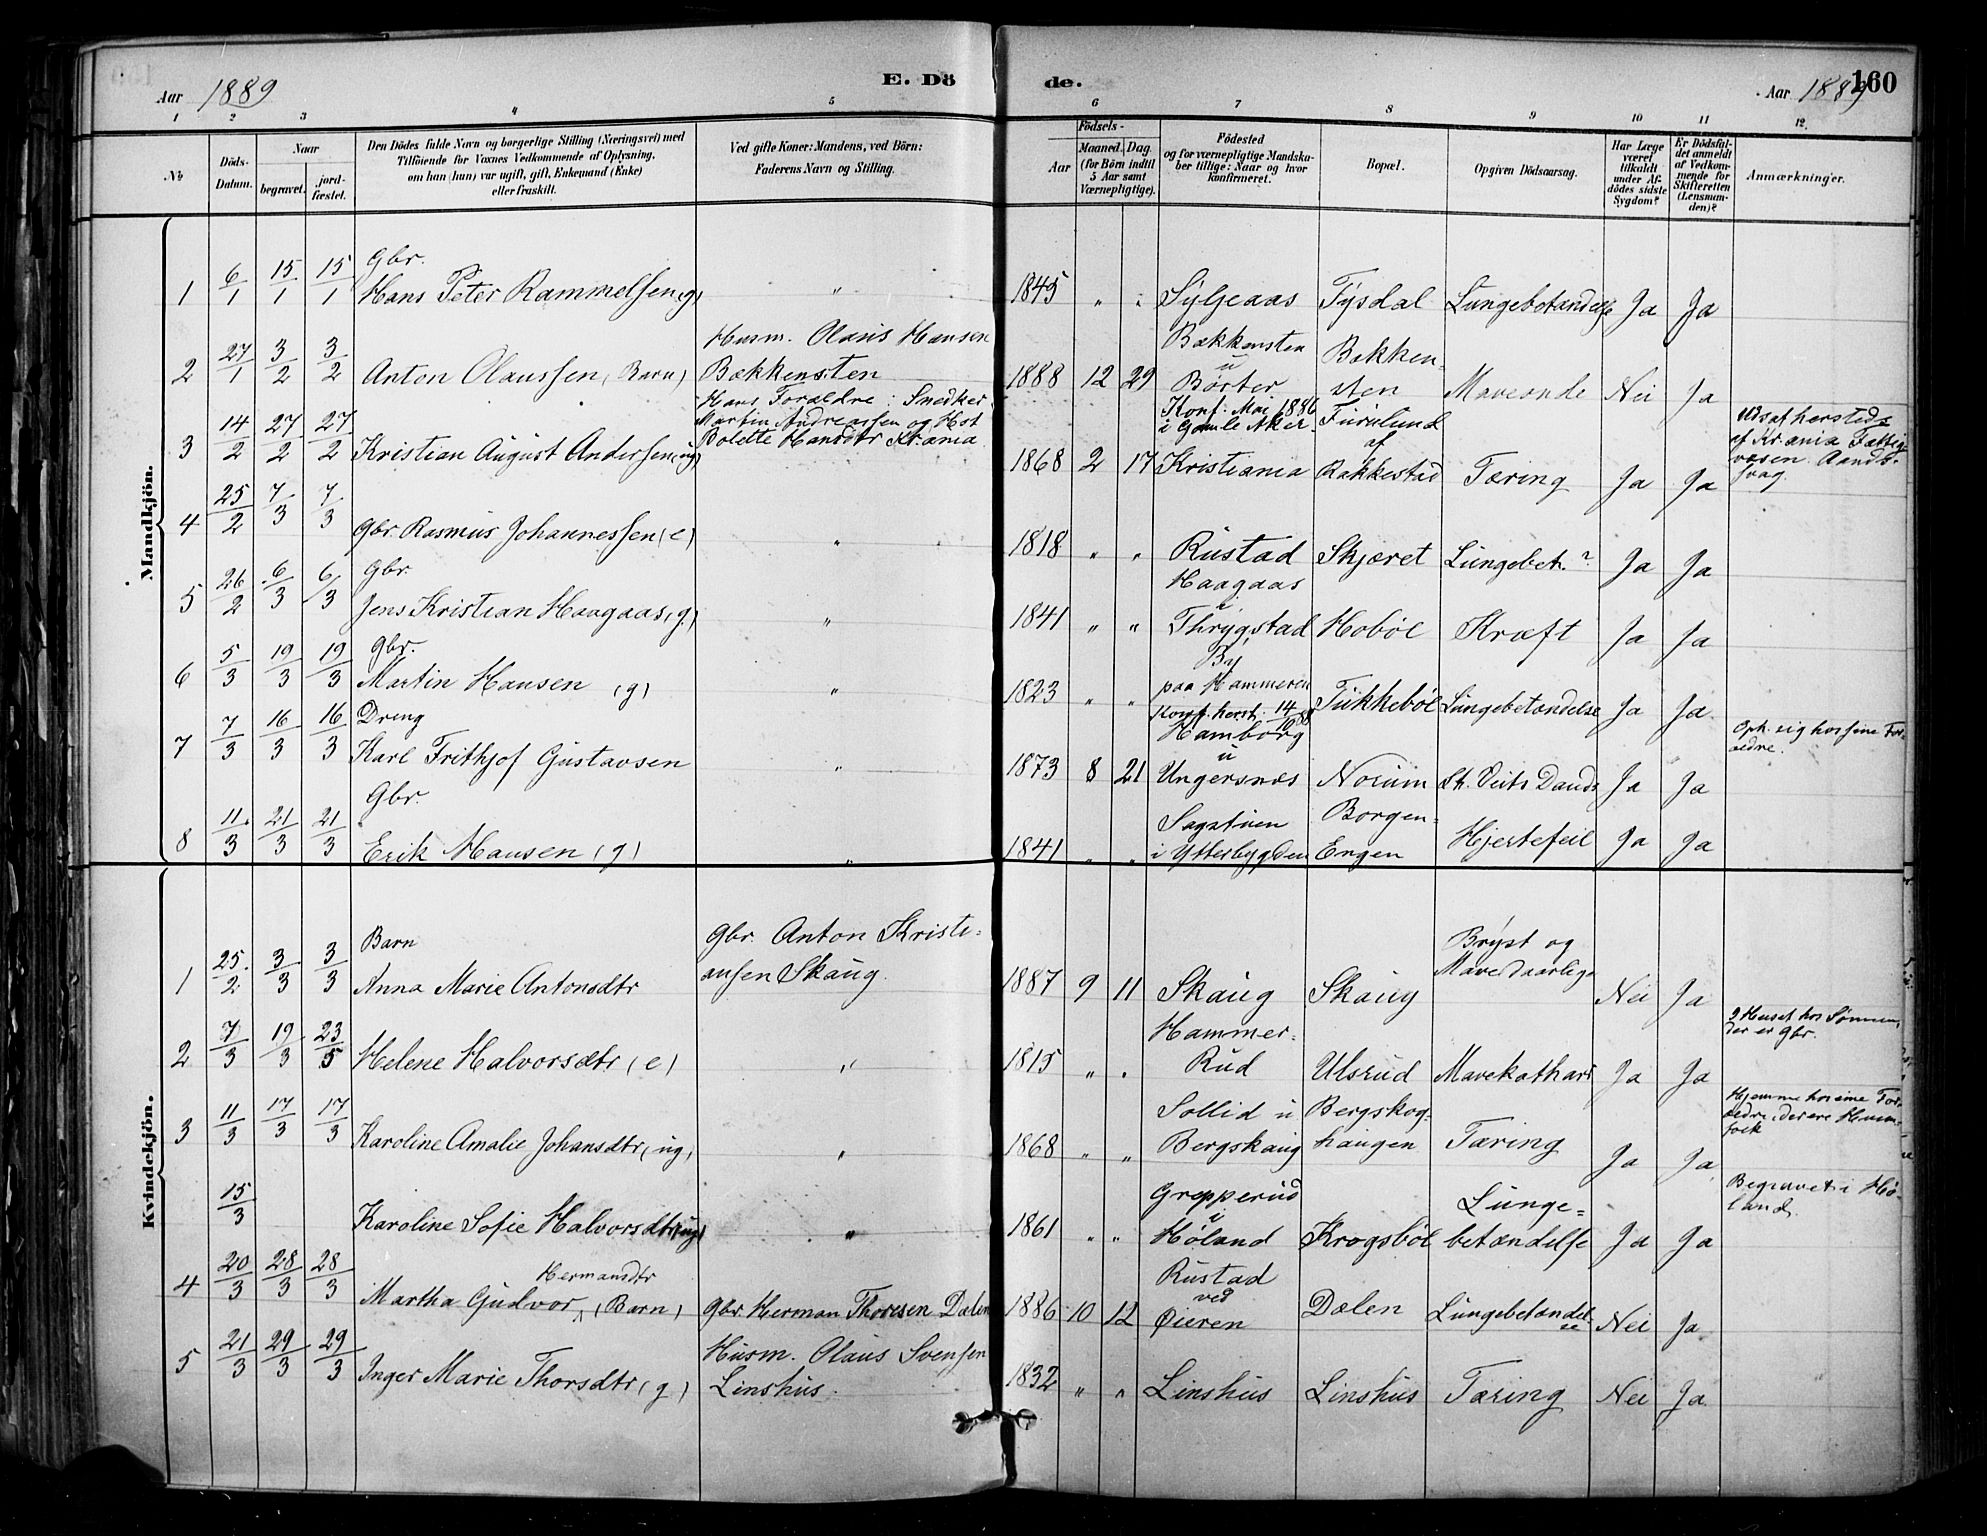 Aar 1889
E. Dö
de.
160
Aar 1889
1 2 3 4 5 6 7 8 9 10 11 12.
No
Döds-
Datum.
Naar
begravet.
jord-
fæstet.
Den Dödes fulde Navn og borgerlige Stilling (Næringsvei) med
Tilföiende for Voxnes Vedkommende af Oplysning,
om han (hun) var ugift, gift, Enkemand (Enke)
eller fraskilt.
Ved gifte Koner: Mandens, ved Börn:
Faderens Navn og Stilling.
Aar
Födsels-
Maaned. Dag.
(for Börn indtil
5 Aar samt
Værnepligtige).
Födested
og for værnepligtige Mandska-
ber tillige: Naar og hvor
konfirmeret.
Bopæl.
Opgiven Dödsaarsag.
Har Læge
været
tilkaldt
under Af-
dödes sidste
Sygdom?
Er Dödsfal-
det anmeldt
af Vedkom-
mende for
Skifteretten
(Lensman-
den)?
Anmærkninger.
Mandkjön.
1 6/1 15/1 15/1 Gbr.
Hans Peter Rammelsen (g) " 1845 " " Syljeaas Tysdal Lungebetændelse Ja Ja
2 27/1 3/2 3/2 Anton Olaussen (Barn) Husm. Olaus Hansen
Bækkensten 1888 12 29 Bækkensten
u
Börter Bækken-
sten Maveonde Nei Ja
3 14/2 27/2 27/2 Kristian August Andersen (ug) Hans Forældre: Snedker
Martin Andreassen og Hst
Bolette Hansdtr Kr.ania 1868 2 17 Konf. Mai 1886
i Gamle Aker
Kristiania Furulund
af
Rakkestad Tæring Ja Ja Udsat hersteds
af Kr.ania Fattig
væsen. Aands-
svag.
4 25/2 7/3 7/3 Gbr. Rasmus Johannessen (e) " 1818 " " Rustad Skjæret Lungebet.? Ja Ja
5 26/2 6/3 6/3 Gbr.
Jens Kristian Haagaas (g) " 1841 " " Haagaas
u
Thrygstad Hobøl Kræft Ja Ja
6 5/3 19/3 19/3 Gbr.
Martin Hansen (g) " 1823 " " By
paa Hammeren Tukkebøl Lungebetændelse Ja Ja.
7 7/3 16/3 16/3 Dreng
Karl Frithjof Gustavsen " 1873 8 21 Konf. herst. 14/10 88
Hamborg
u
Ungersnæs Norum St. Veits Dands Ja Ja Oph. sig hos sine For-
ældre.
8 11/3 21/3 21/3 Gbr.
Erik Hansen (g) " 1841 " " Sagstuen
i Ytterbygden Borgen-
Engen Hjertefeil Ja Ja
Kvindekjön.
1 25/2 3/3 3/3 Barn
Anna Marie Antonsdtr Gbr. Anton Kristi-
ansen Skaug. 1887 9 11 Skaug Skaug Bryst og
Mavedaarlige Nei Ja
2 7/3 19/3 23/5 Helene Halvorsdtr (e) " 1815 " " Hammer-
Rud Ulsrud Mavekathar Ja Ja I Huset hos Sønnen,
der er gbr.
3 11/3 17/3 17/3 Karoline Amalie Johansdtr (ug) " 1868 " " Sollid u
Bergskaug Bergskog-
haugen Tæring Ja Ja Hjemme hos sine For-
ældre, der ere Husm-
folk
15/3 Karoline Sofie Halvorsdtr (ug) " 1861 " " Grepperud
i
Høland Krogsbøl Lunge-
betændelse Ja Ja Begravet i Hø-
land.
4 20/3 28/3 28/3 Martha Gudvor Hermansdtr (Barn) Gbr. Herman Thoresen Dælen 1886 10 12 Rustad
ved
Øieren Dælen Lungebetændel-
se Nei Ja
5 21/3 29/3 29/3 Inger Marie Thorsdtr (g) Husm. Olaus Svensen
Linshus. 1832 " " Linshus Linshus Tæring Nei Ja